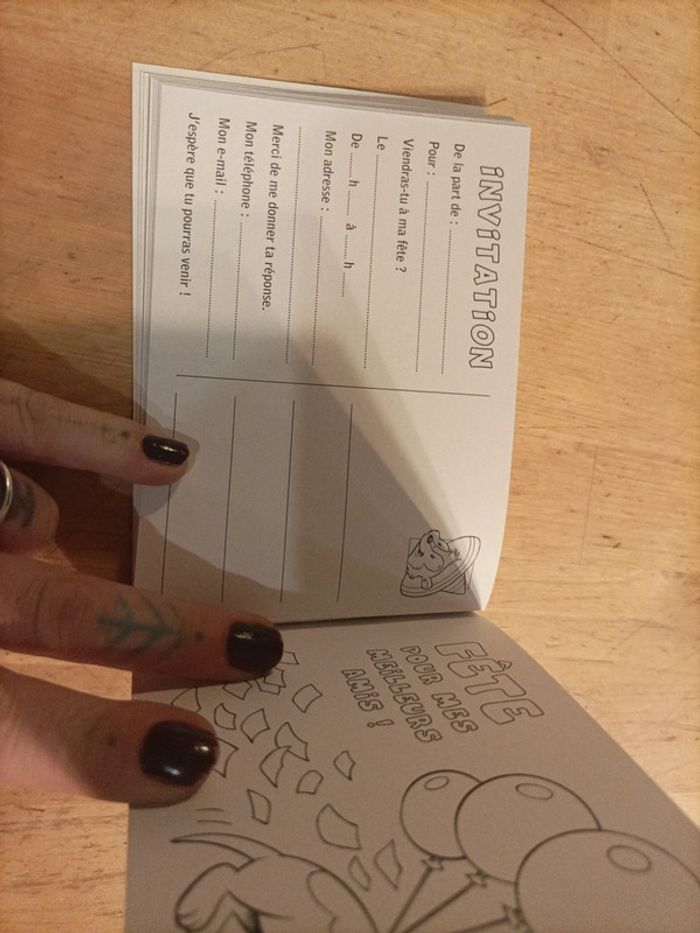 INVITATION
De la part de : ..........
Pour : ..........
Viendras-tu à ma fête ?
Le ..........
De ....... h ....... à ....... h .......
Mon adresse : ..........
..........
Merci de me donner ta réponse.
Mon téléphone : ..........
Mon e-mail : ..........
J'espère que tu pourras venir !
FÊTE
POUR MES
MEILLEURS
AMIS !